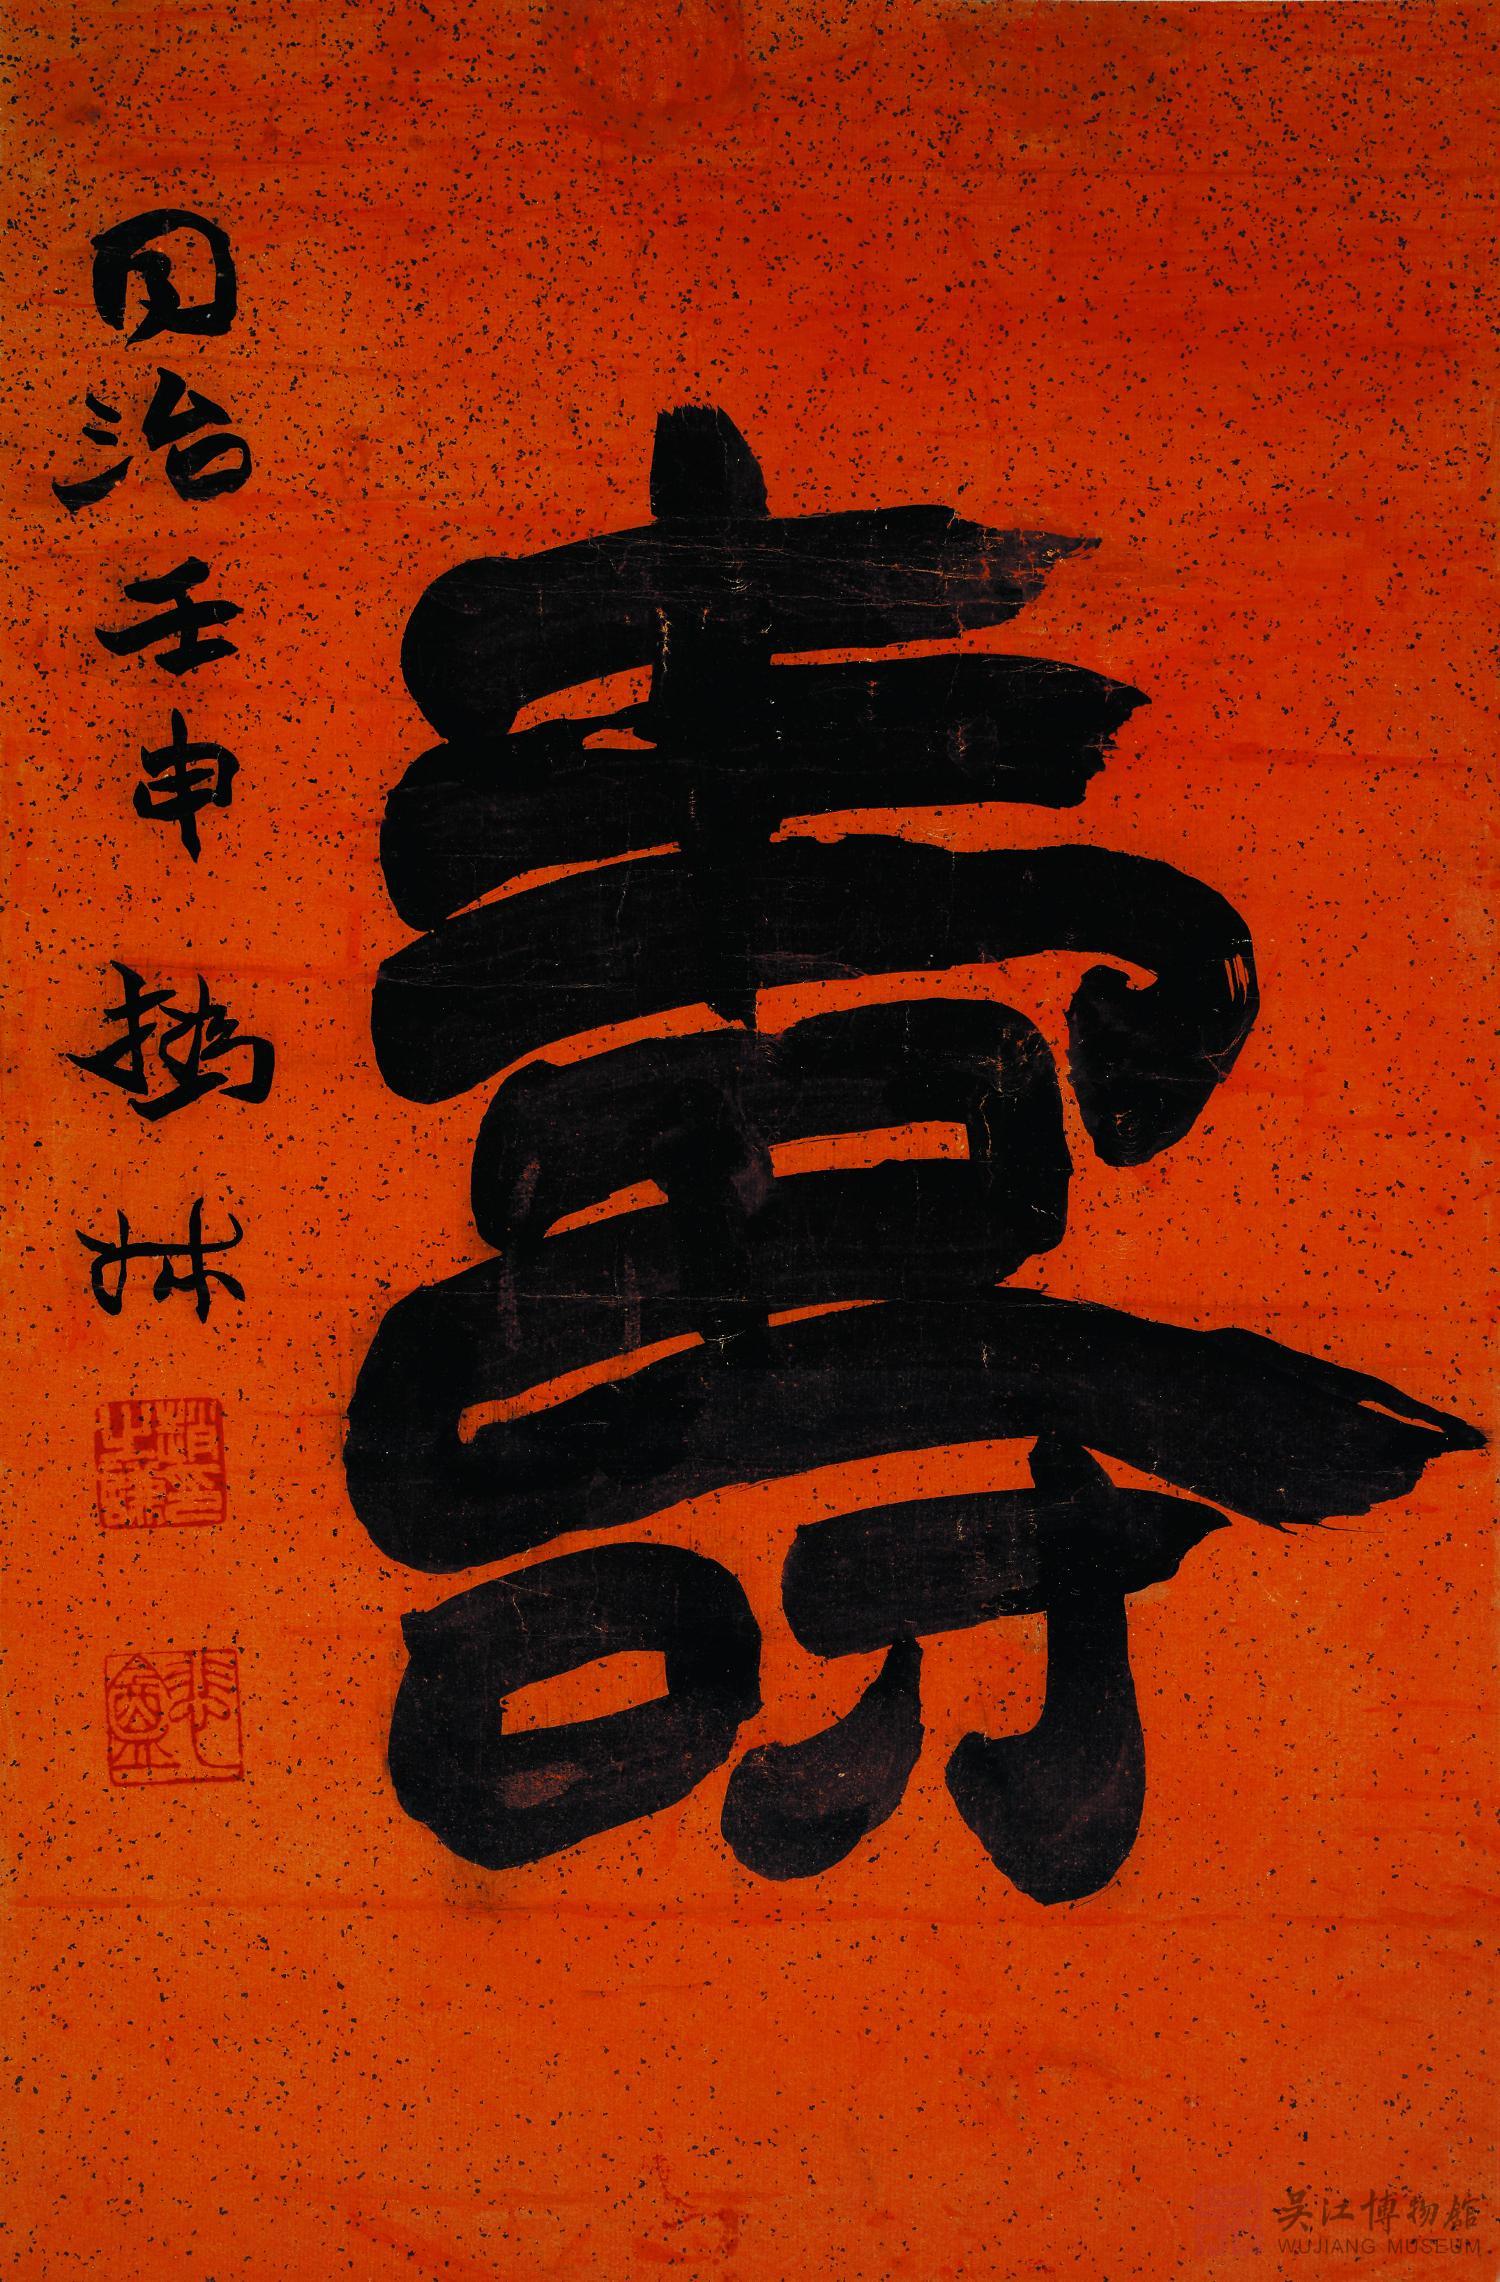 壽
同治壬申 撝叔
悲盦
吳江博物館
WUJIANG MUSEUM